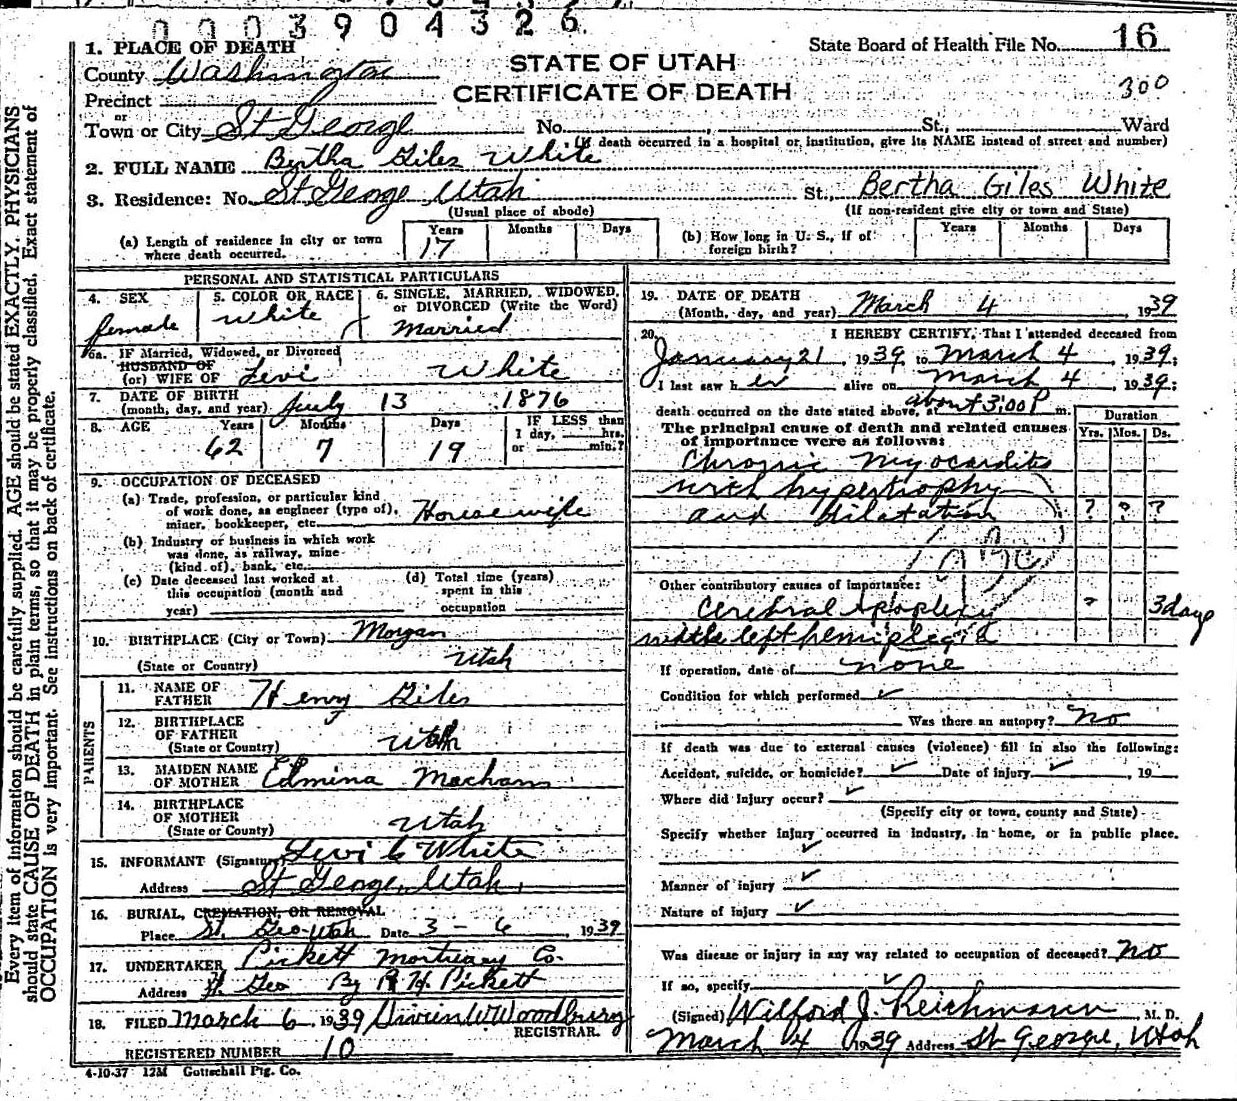 0003904326
State Board of Health File No. 16
300
STATE OF UTAH
CERTIFICATE OF DEATH
Every item of information should be carefully supplied. AGE should be stated EXACTLY. PHYSICIANS
should state CAUSE OF DEATH in plain terms, so that it may be properly classified. Exact statement of
OCCUPATION is very important. See instructions on back of certificate.
1. PLACE OF DEATH
County Washington
Precinct
or
Town or City St George No. , St., Ward
(If death occurred in a hospital or institution, give its NAME instead of street and number)
2. FULL NAME Bertha Giles White
3. Residence: No. St George Utah St., Bertha Giles White
(Usual place of abode) (If non-resident give city or town and State)
(a) Length of residence in city or town where death occurred. Years 17 Months Days
(b) How long in U. S., if of foreign birth? Years Months Days
PERSONAL AND STATISTICAL PARTICULARS
4. SEX female
5. COLOR OR RACE White
6. SINGLE, MARRIED, WIDOWED, or DIVORCED (Write the Word) Married
6a. IF Married, Widowed, or Divorced
HUSBAND OF
(or) WIFE OF Levi White
7. DATE OF BIRTH
(month, day, and year) July 13 1876
8. AGE Years 62 Months 7 Days 19 IF LESS than 1 day, hrs. or min.?
9. OCCUPATION OF DECEASED
(a) Trade, profession, or particular kind
of work done, as engineer (type of),
miner, bookkeeper, etc. Housewife
(b) Industry or business in which work
was done, as railway, mine
(kind of), bank, etc.
(c) Date deceased last worked at
this occupation (month and
year)
(d) Total time (years)
spent in this
occupation
10. BIRTHPLACE (City or Town) Morgan
(State or Country) Utah
PARENTS
11. NAME OF
FATHER Henry Giles
12. BIRTHPLACE
OF FATHER
(State or Country) Utah
13. MAIDEN NAME
OF MOTHER Edmina Mecham
14. BIRTHPLACE
OF MOTHER
(State or Country) Utah
15. INFORMANT (Signature) Levi C White
Address St George, Utah,
16. BURIAL, CREMATION, OR REMOVAL
Place St. Geo-Utah Date 3 - 6, 1939
17. UNDERTAKER Pickett Mortuary Co.
Address St Geo By R H Pickett
18. FILED March 6, 1939 Woodbury
REGISTRAR.
REGISTERED NUMBER 10
4-10-37 12M Gottschall Ptg. Co.
19. DATE OF DEATH
(Month, day, and year) March 4 1939
20. I HEREBY CERTIFY, That I attended deceased from
January 21, 1939 to March 4, 1939;
I last saw her alive on March 4, 1939;
death occurred on the date stated above, at about 3:00 P m.
The principal cause of death and related causes
of importance were as follows:
Duration
Yrs. Mos. Ds.
Chronic Myocarditis
with hypertrophy
and dilatation ? ? ?
Other contributory causes of importance:
Cerebral Apoplexy ? 3 days
with left hemiplegia
If operation, date of none
Condition for which performed ✓
Was there an autopsy? No
If death was due to external causes (violence) fill in also the following:
Accident, suicide, or homicide? ✓ Date of injury ✓, 19
Where did injury occur? ✓
(Specify city or town, county and State)
Specify whether injury occurred in industry, in home, or in public place.
✓
Manner of injury ✓
Nature of injury ✓
Was disease or injury in any way related to occupation of deceased? No
If so, specify ✓
(Signed) Wilford J. Reichmann, M. D.
March 4 1939 Address St George, Utah